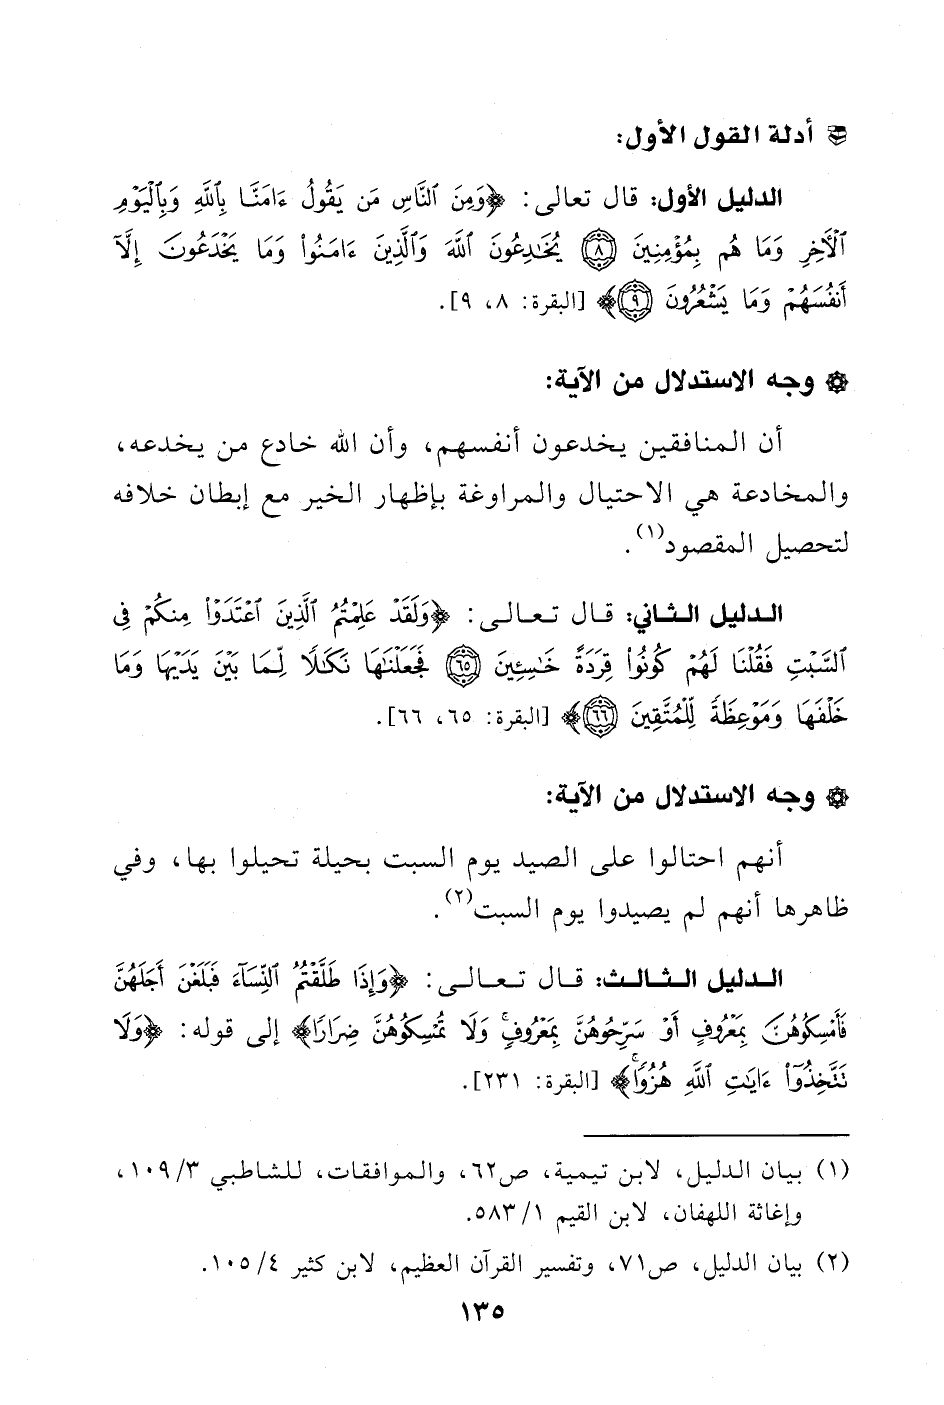 أدلة القول الأول:
الدليل الأول: قال تعالى: ﴿وَمِنَ ٱلنَّاسِ مَن يَقُولُ ءَامَنَّا بِٱللَّهِ وَبِٱلْيَوْمِ
ٱلْأَخِرِ وَمَا هُم بِمُؤْمِنِينَ ٨ يُخَٰدِعُونَ ٱللَّهَ وَٱلَّذِينَ ءَامَنُوا۟ وَمَا يَخْدَعُونَ إِلَّآ
أَنفُسَهُمْ وَمَا يَشْعُرُونَ ٩﴾ [البقرة: ٨، ٩].
وجه الاستدلال من الآية:
أن المنافقين يخدعون أنفسهم، وأن الله خادع من يخدعه،
والمخادعة هي الاحتيال والمراوغة بإظهار الخير مع إبطان خلافه
لتحصيل المقصود(١).
الدليل الثاني: قال تعالى: ﴿وَلَقَدْ عَلِمْتُمُ ٱلَّذِينَ ٱعْتَدَوْا۟ مِنكُمْ فِى
ٱلسَّبْتِ فَقُلْنَا لَهُمْ كُونُوا۟ قِرَدَةً خَٰسِـِٔينَ ٦٥ فَجَعَلْنَٰهَا نَكَٰلًا لِّمَا بَيْنَ يَدَيْهَا وَمَا
خَلْفَهَا وَمَوْعِظَةً لِّلْمُتَّقِينَ ٦٦﴾ [البقرة: ٦٥، ٦٦].
وجه الاستدلال من الآية:
أنهم احتالوا على الصيد يوم السبت بحيلة تحيلوا بها، وفي
ظاهرها أنهم لم يصيدوا يوم السبت(٢).
الدليل الثالث: قال تعالى: ﴿وَإِذَا طَلَّقْتُمُ ٱلنِّسَآءَ فَبَلَغْنَ أَجَلَهُنَّ
فَأَمْسِكُوهُنَّ بِمَعْرُوفٍ أَوْ سَرِّحُوهُنَّ بِمَعْرُوفٍۚ وَلَا تُمْسِكُوهُنَّ ضِرَارًا﴾ إلى قوله: ﴿وَلَا
تَتَّخِذُوٓا۟ ءَايَٰتِ ٱللَّهِ هُزُوًاۚ﴾ [البقرة: ٢٣١].
(١) بيان الدليل، لابن تيمية، ص٦٢، والموافقات، للشاطبي ١٠٩/٣،
وإغاثة اللهفان، لابن القيم ٥٨٣/١.
(٢) بيان الدليل، ص٧١، وتفسير القرآن العظيم، لابن كثير ١٠٥/٤.
١٣٥